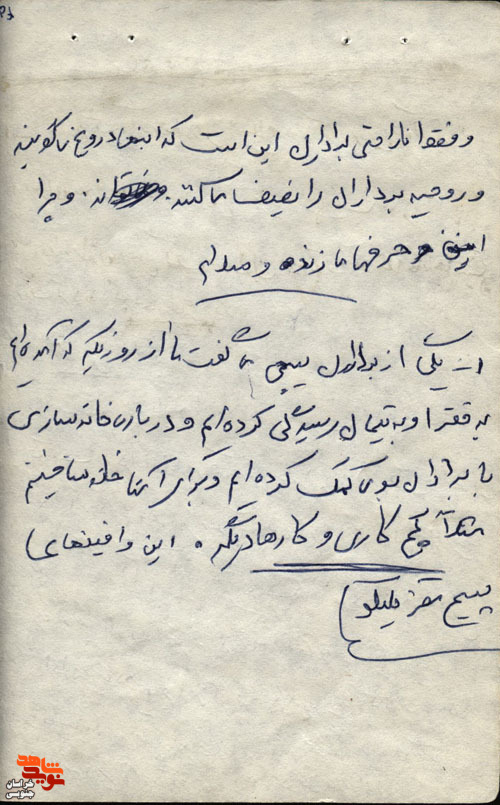 و فقط ناراحتی برادران این است که اینها دروغ می‌گویند
و روحیه برداران را تضعیف می‌کنند. و چرا
این حرفها را زنده و
۱- یکی از برادران بسیجی می گفت ما از روزیکه که آمده‌ایم
به فقرا و به یتیمان رسیدگی کرده‌ایم و درباره خانه سازی
با برادران بومی کمک کرده‌ایم و برای آنها خانه ساختیم
مثلاً گچ کاری و کارهای دیگر. این واقیتهای
بسیج سقز
نوید شاهد
خراسان جنوبی